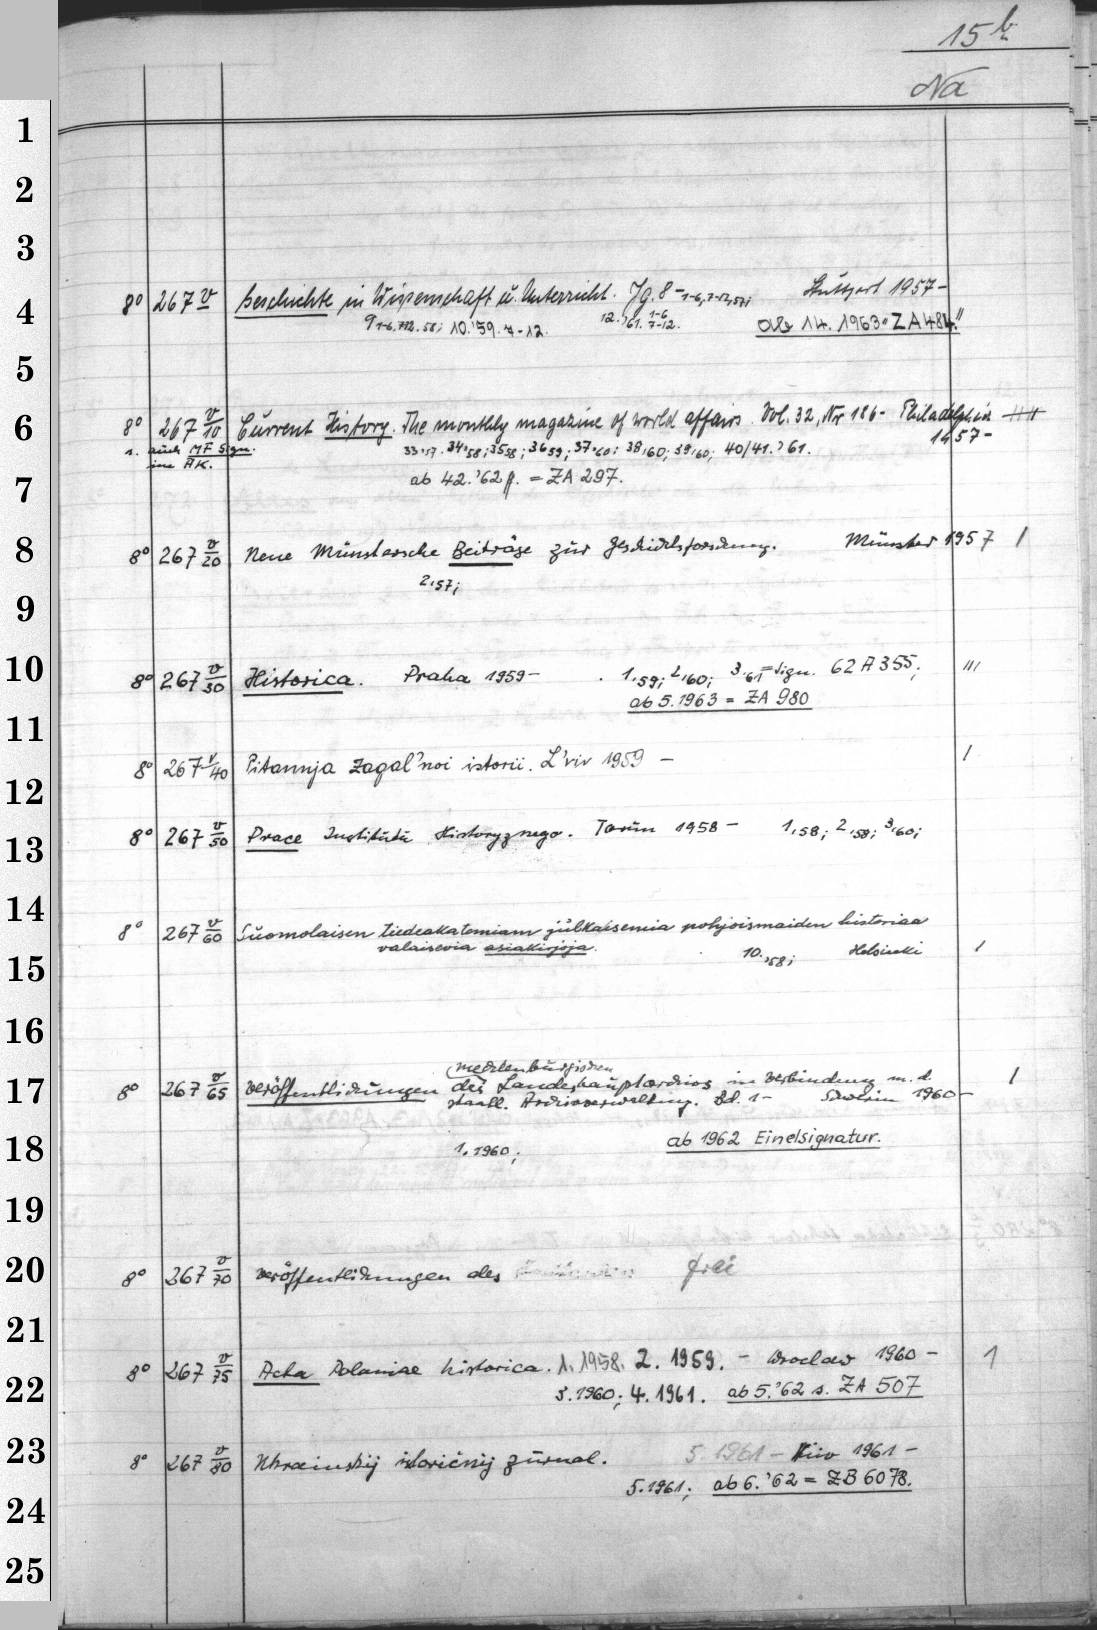 15 b
Na
1
2
3
4 8° 267 v Geschichte in Wissenschaft u. Unterricht. Jg. 8- 1-6,7-12,57; Stuttgart 1957-
9 1-6.7-12.58; 10.'59.7-12. 12.'61. 1-6 7-12. ab 14. 1963 "ZA 484."
5
6 8° 267 v/10 Current History. The monthly magazine of world affairs. Vol. 32, Nr 186- Philadelphia 1957-
s. auch MF Sign. 33'57. 34'58; 35 58; 36 59; 37'60; 38,60; 39,60; 40/41.'61.
im AK. ab 42.'62 ff. = ZA 297.
7
8 8° 267 v/20 Neue Münstersche Beiträge zur Geschichtsforschung. Münster 1957 1
2,57;
9
10 8° 267 v/30 Historica. Praha 1959- 1,59; 2,60; 3,61 = Sign. 62 A 355; III
ab 5.1963 = ZA 980
11
8° 267 v/40 Pitannja zagal'noi istorii. L'viv 1959 - 1
12
13 8° 267 v/50 Prace Instytutu Historycznego. Toruń 1958 - 1,58; 2,58; 3,60;
14
8° 267 v/60 Suomolaisen tiedeakatemiam julkaisemia pohjoismaiden historiaa
valaisevia asiakirjoja. 10.,58; Helsinki 1
15
16
mecklenburgischen
17 8° 267 v/65 Veröffentlichungen des Landeshauptarchivs in Verbindung m. d. 1
staatl. Archivverwaltung. Bd. 1- Schwerin 1960-
18 1.1960; ab 1962 Einelsignatur.
19
20 8° 267 v/70 Veröffentlichungen des frei
21
8° 267 v/75 Acta Poloniae historica. 1.1958. 2. 1959. - Wroclaw 1960 - 1
22 3.1960; 4.1961. ab 5.'62 s. ZA 507
23 8° 267 v/80 Ukrainskij istoričnij žurnal. 5.1961 - Kiiv 1961 -
5.1961; ab 6.'62 = ZB 6078.
24
25